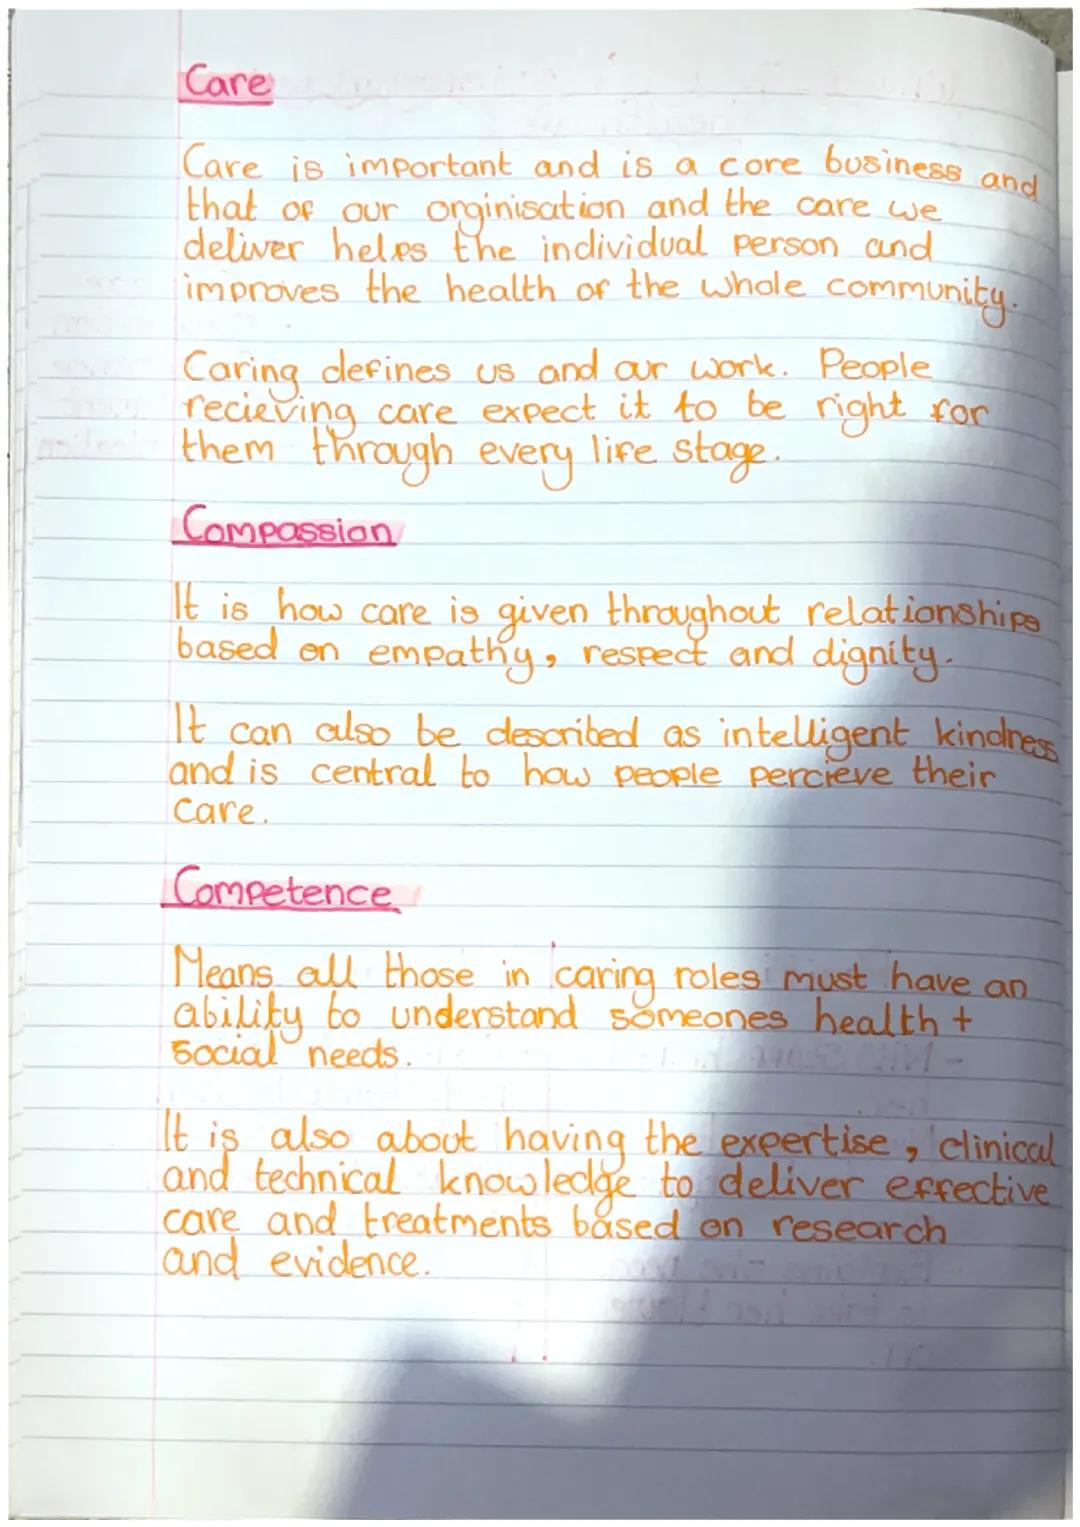 Care
Care is important and is a core business and
that of our orginisation and the care we
deliver helps the individual person and
improves the health of the whole community.
Caring defines us and our work. People
recieving care expect it to be right for
them through every life stage.
Compassion
It is how care is given throughout relationships
based on empathy, respect and dignity.
It can also be described as intelligent kindness
and is central to how people percieve their
care.
Competence
Means all those in caring roles must have an
ability to understand someones health +
social needs.
It is also about having the expertise, clinical
and technical knowledge to deliver effective
care and treatments based on research
and evidence.